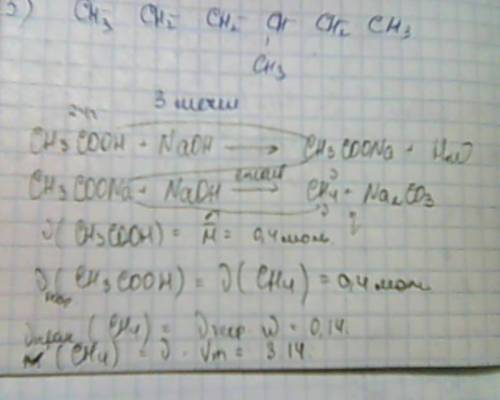 CH3 CH2 CH2 CH CH2 CH3
CH3
3
24г
CH3COOH + NaOH → CH3COONa + H2O
CH3COONa + NaOH → CH4 + Na2CO3
ν(CH3COOH) = = 0,4 моль
(CH3COOH) = ν(CH4) = 0,4 моль
(CH4) = ω = 0.14.
(CH4) = ν · Vm = 3.14.